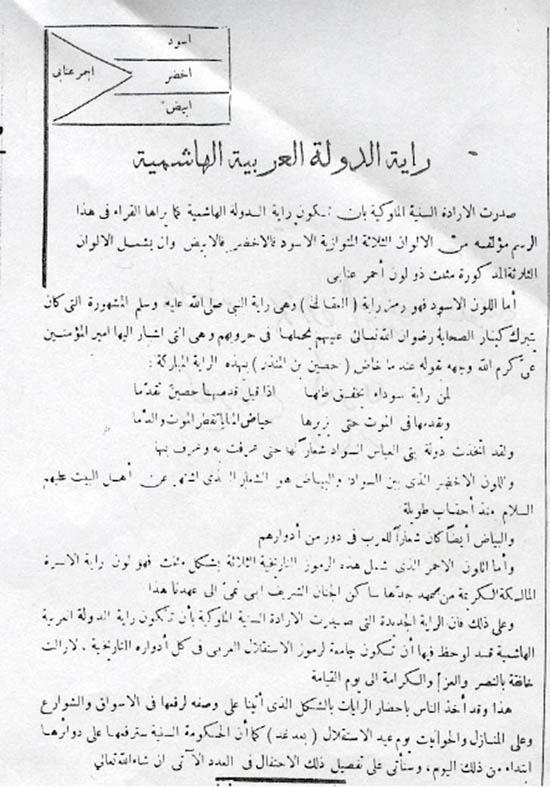 اسود
اخضر
احمر عنابى
ابيض
راية الدولة العربية الهاشمية
صدرت الارادة السنية الملوكية بان تكون راية الدولة الهاشمية كما يراها القراء فى هذا
الرسم مؤلفة من الالوان الثلاثة المتوازية الاسود فالاخضر فالابيض وان يشمل الالوان
الثلاثة المذكورة مثلث ذو لون أحمر عنابى
أما اللون الاسود فهو رمز راية (العقاب) وهى راية النبى صلى الله عليه وسلم المشهورة التى كان
يتبرك كبار الصحابة رضوان الله تعالى عليهم بحملها فى حروبهم وهى التى اشار اليها امير المؤمنين
على كرم الله وجهه بقوله عند ما خاض (حصين بن المنذر) بهذه الراية المباركة :
لمن راية سوداء يخفق ظلها اذا قيل قدمها حصين تقدما
ويقدمها فى الموت حتى يزيرها حياض المنايا تقطر الموت والدما
ولقد اتخذت دولة بنى العباس السواد شعاراً لها حتى عرفت به وعرف بها
واللون الاخضر الذى بين السواد والبياض هو الشعار الذى اشتهر عن أهل البيت عليهم
السلام منذ أحقاب طويلة
والبياض أيضاً كان شعاراً للعرب فى دور من أدوارهم
وأما اللون الاحمر الذى شمل هذه الرموز التاريخية الثلاثة بشكل مثلث فهو لون راية الاسرة
المالكة الكريمة من عهد جدها ساكن الجنان الشريف ابى نمى الى عهدنا هذا
وعلى ذلك فان الراية الجديدة التى صدرت الارادة السنية الملوكية بأن تكون راية الدولة العربية
الهاشمية قد لوحظ فيها أن تكون جامعة لرموز الاستقلال العربى فى كل أدواره التاريخية . لازالت
خافقة بالنصر والعز والكرامة الى يوم القيامة
هذا وقد أخذ الناس باحضار الرايات بالشكل الذى أتينا على وصفه لرفعها فى الاسواق والشوارع
وعلى المنازل والحوانيت يوم عيد الاستقلال (بعد غد) كما أن الحكومة السنية سترفعها على دوائرها
ابتداء من ذلك اليوم . وسنأتى على تفصيل ذلك الاحتفال فى العدد الآتى ان شاء الله تعالى